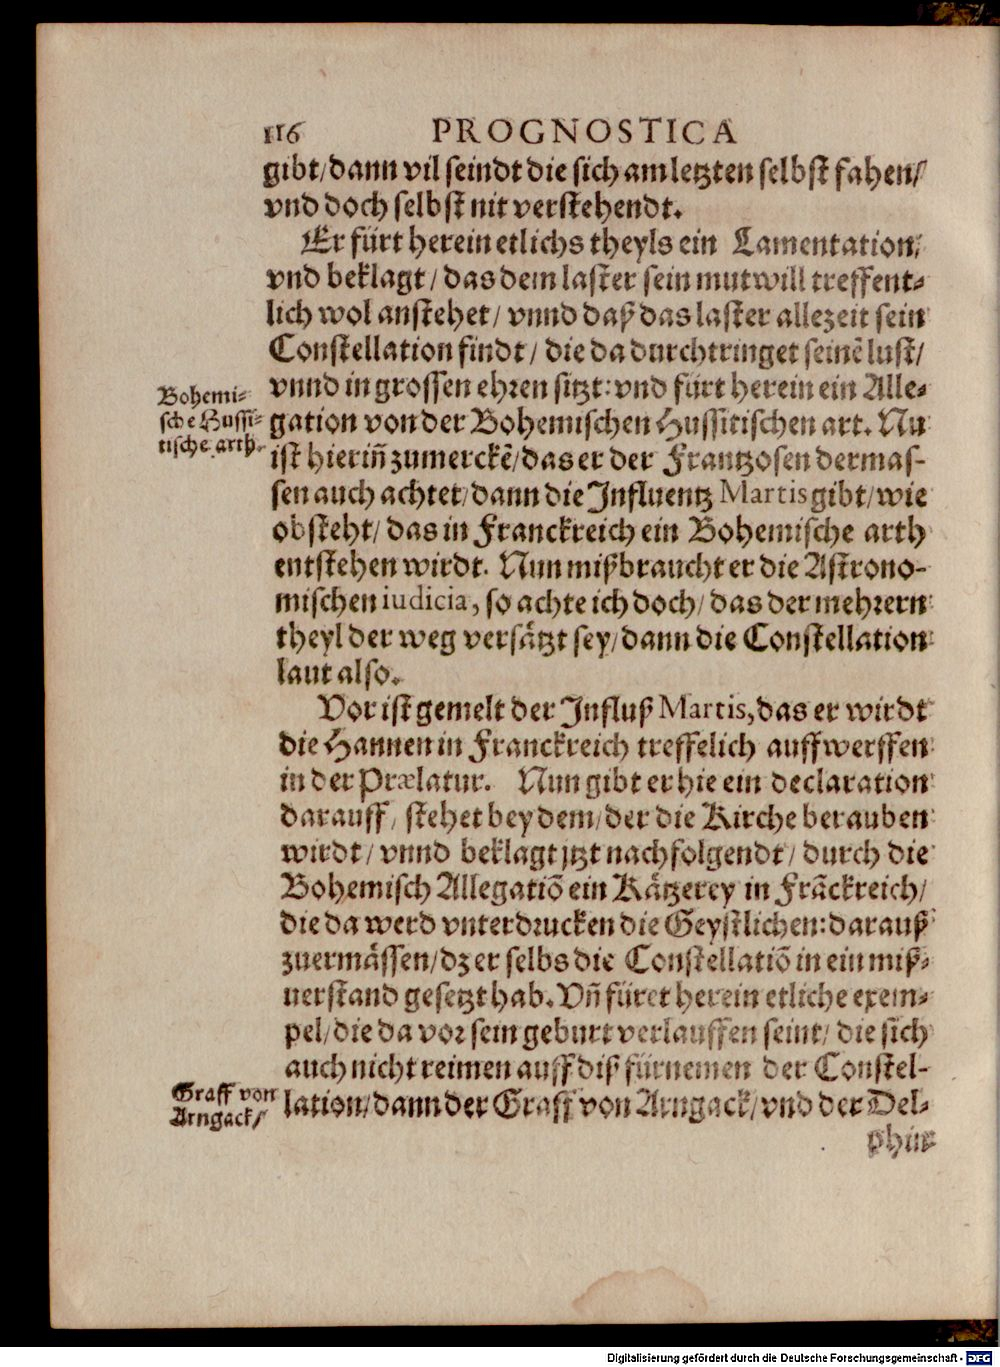 116 PROGNOSTICA
gibt/dann vil seindt die sich am letzten selbst fahen/
vnd doch selbst nit verstehendt.
Er fürt herein etlichs theyls ein Lamentation,
vnd beklagt/ das dem laster sein mutwill treffent-
lich wol anstehet/ vnnd daß das laster allezeit sein
Constellation findt/ die da durchtringet seinē lust/
Bohemi-
sche Hussi-
tische arth.
vnnd in grossen ehren sitzt: vnd fürt herein ein Alle-
gation von der Bohemischen Hussitischen art. Nu
ist hieriñ zumerckē/das er der Frantzosen dermas-
sen auch achtet/dann die Influentz Martis gibt/wie
obsteht/ das in Franckreich ein Bohemische arth
entstehen wirdt. Nun mißbraucht er die Astrono-
mischen iudicia, so achte ich doch/ das der mehrern
theyl der weg versätzt sey/dann die Constellation
laut also.
Vor ist gemelt der Influß Martis, das er wirdt
die Hannen in Franckreich treffelich auffwerffen
in der Prælatur. Nun gibt er hie ein declaration
darauff/ stehet bey dem/der die Kirche berauben
wirdt/ vnnd beklagt jtzt nachfolgendt/ durch die
Bohemisch Allegatiō ein Kätzerey in Frāckreich/
die da werd vnterdrucken die Geystlichen: darauß
zuermässen/dz er selbs die Constellatiō in ein miß-
uerstand gesetzt hab. Vñ füret herein etliche exem-
pel/die da vor sein geburt verlauffen seint/ die sich
auch nicht reimen auff diß fürnemen der Constel-
Graff von
Arngack/
lation/dann der Graff von Arngack/vnd der Del-
phin
Digitalisierung gefördert durch die Deutsche Forschungsgemeinschaft - DFG